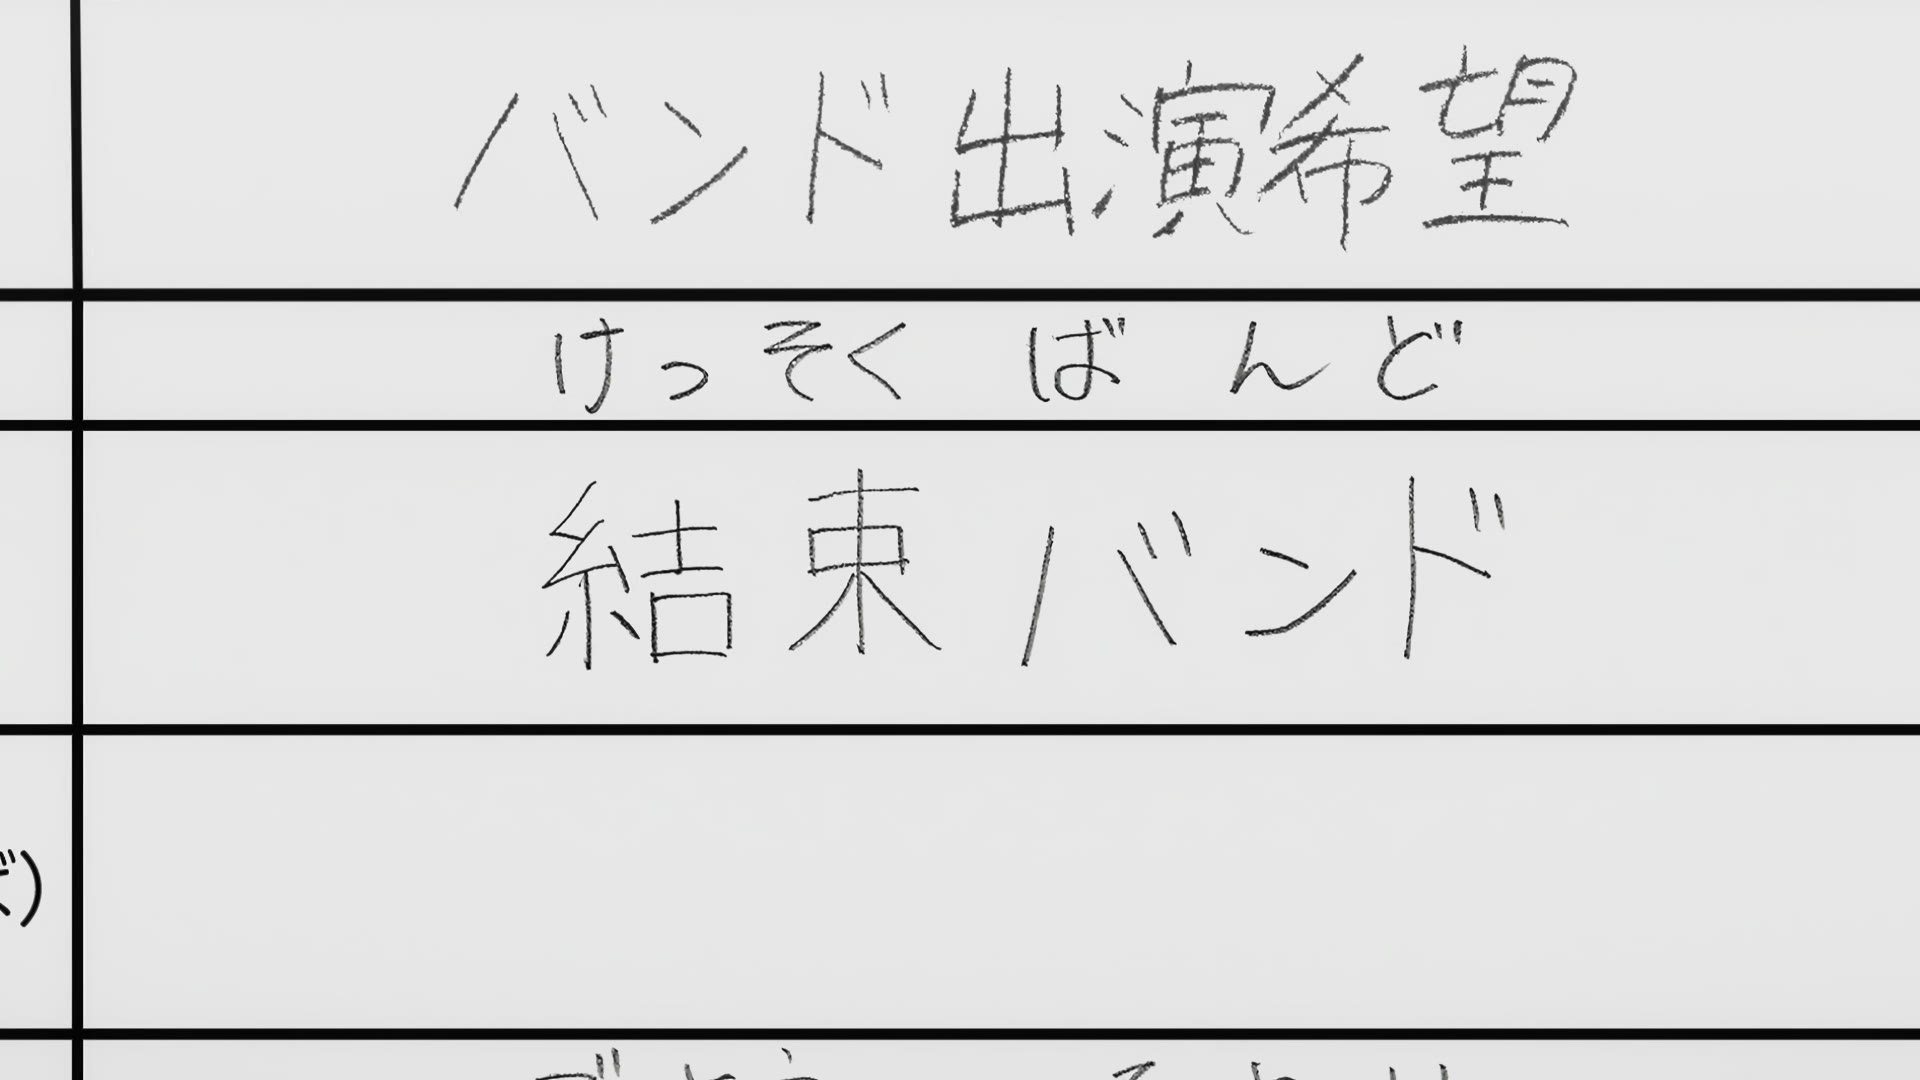 バンド出演希望
けっそくばんど
結束バンド